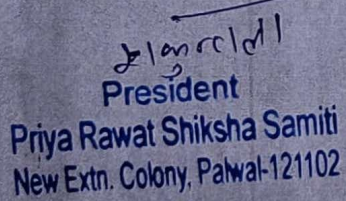 शकुन्तला
President
Priya Rawat Shiksha Samiti
New Extn. Colony, Palwal-121102